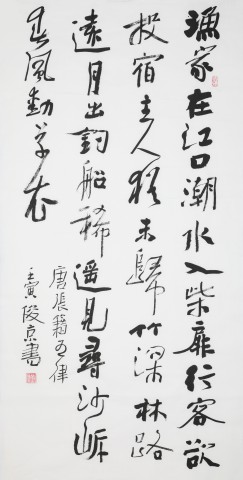 漁家在江口潮水入柴扉行客欲
投宿主人猶未歸竹深林路
遠月出釣船稀遥見尋沙岸
春風動草衣
唐張籍五律
壬寅俊京書